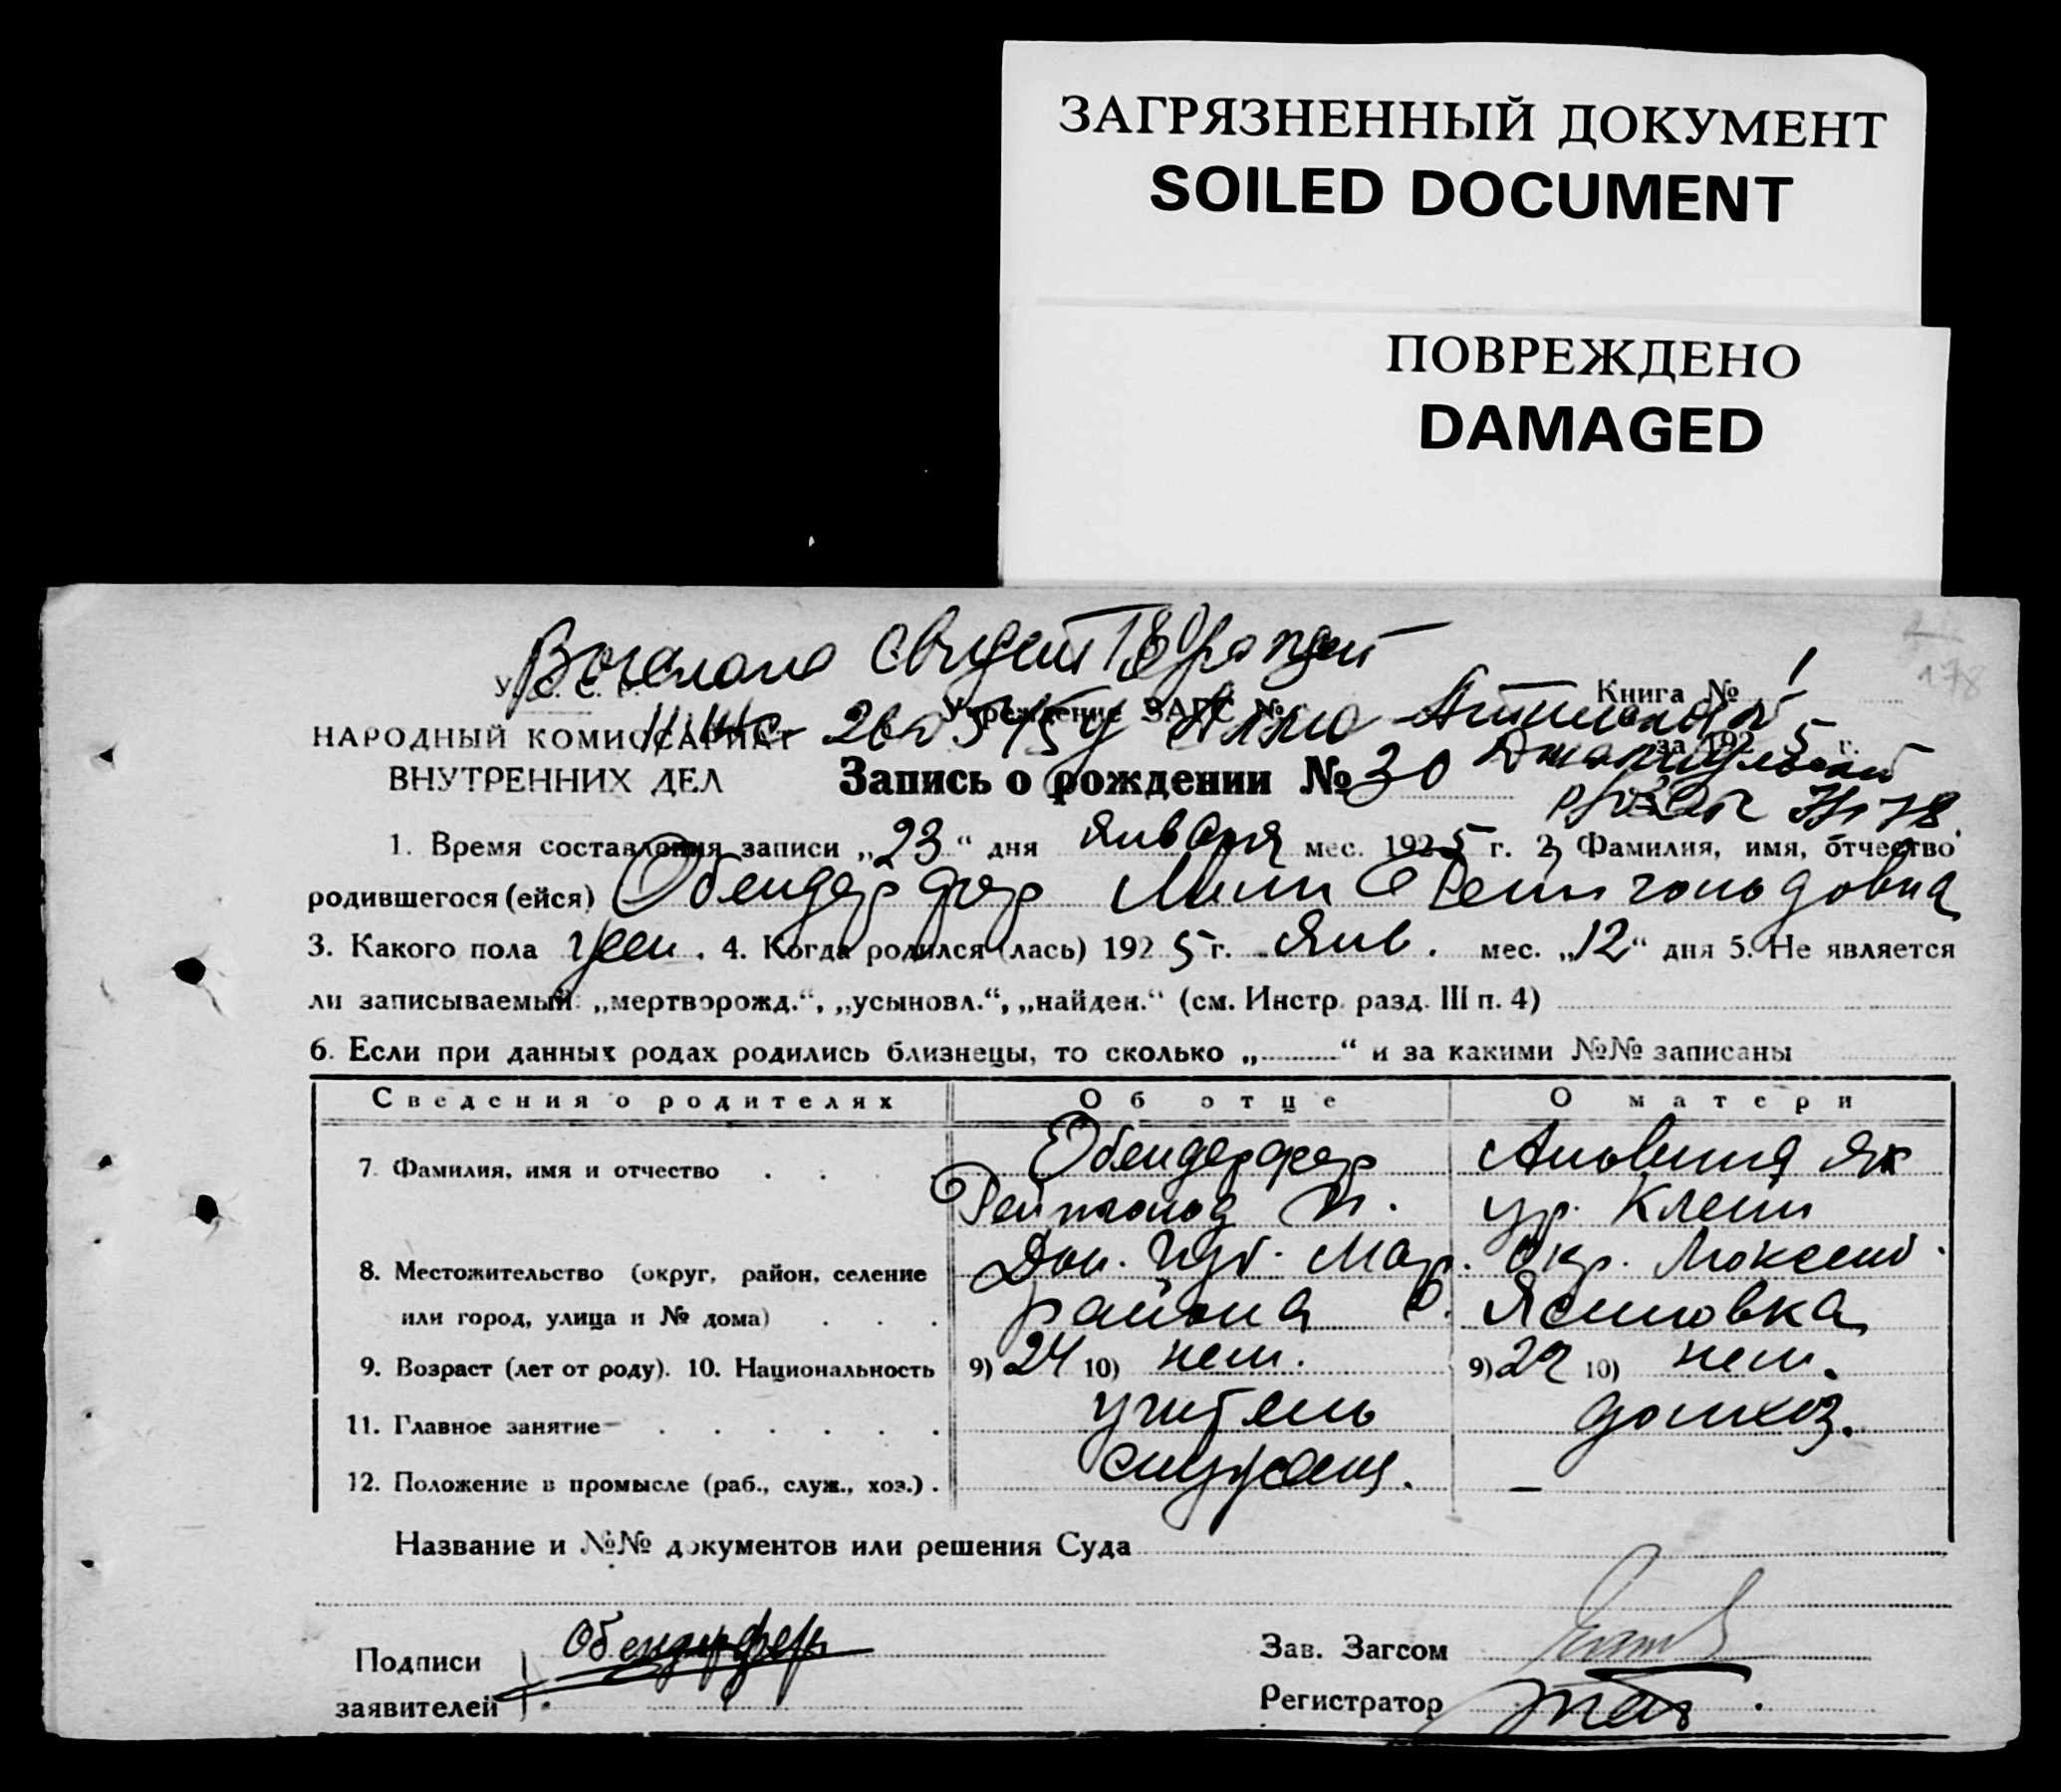 ЗАГРЯЗНЕННЫЙ ДОКУМЕНТ
SOILED DOCUMENT
ПОВРЕЖДЕНО
DAMAGED
178
У. С. С. Р. Учреждение ЗАГС № Книга №
НАРОДНЫЙ КОМИССАРИАТ за 1925 г.
ВНУТРЕННИХ ДЕЛ Запись о рождении № 30
1. Время составления записи „23“ дня января мес. 1925 г. 2. Фамилия, имя, отчество
родившегося (ейся) Обендерфер Рейнгольдовна
3. Какого пола жен. 4. Когда родился (лась) 1925 г. Янв. мес. „12“ дня 5. Не является
ли записываемый: „мертворожд.“, „усыновл.“, „найден.“ (см. Инстр. разд. III п. 4)
6. Если при данных родах родились близнецы, то сколько „..........“ и за какими №№ записаны
Сведения о родителях Об отце О матери
7. Фамилия, имя и отчество . . Обендерфер Альвина Як
Рейнгольд И. ур. Клейн
8. Местожительство (округ, район, селение Дон. губ. Мар. окр.
или город, улица и № дома) . . . района с. Ясиновка
9. Возраст (лет от роду). 10. Национальность 9) 24 10) нем. 9) 22 10) нем.
11. Главное занятие . . . . . . учитель домхоз.
12. Положение в промысле (раб., служ., хоз.) . служащ. —
Название и №№ документов или решения Суда
Подписи Обендерфер Зав. Загсом
заявителей Регистратор